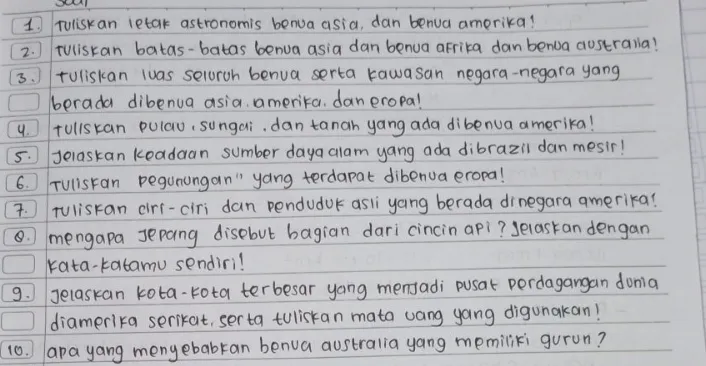 Soal
1. Tuliskan letak astronomis benua asia, dan benua amerika!
2. Tuliskan batas-batas benua asia dan benua afrika dan benua australia!
3. tuliskan luas seluruh benua serta kawasan negara-negara yang
berada dibenua asia, amerika, dan eropa!
4. tuliskan pulau, sungai, dan tanah yang ada dibenua amerika!
5. jelaskan keadaan sumber daya alam yang ada dibrazil dan mesir!
6. Tuliskan pegunungan" yang terdapat dibenua eropa!
7. tuliskan ciri-ciri dan penduduk asli yang berada dinegara amerika!
8. mengapa jepang disebut bagian dari cincin api? jelaskan dengan
kata-katamu sendiri!
9. jelaskan kota-kota terbesar yang menjadi pusat perdagangan dunia
diamerika serikat, serta tuliskan mata uang yang digunakan!
10. apa yang menyebabkan benua australia yang memiliki gurun?